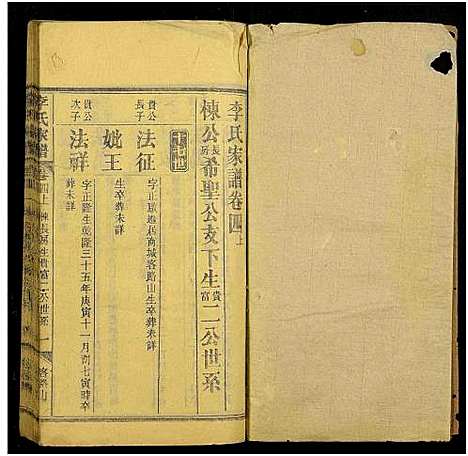 李氏家譜卷四上
棟公長房希聖公支下生貴富二公世系
貴公長子
法征
字正啟遷居商城客路山生卒葬未詳
妣王
生卒葬未詳
貴公次子
法祥
字正隆生乾隆三十五年庚寅十一月初七寅時卒
葬未詳
李氏家譜
卷四上 棟長房生貴富二公世系 一